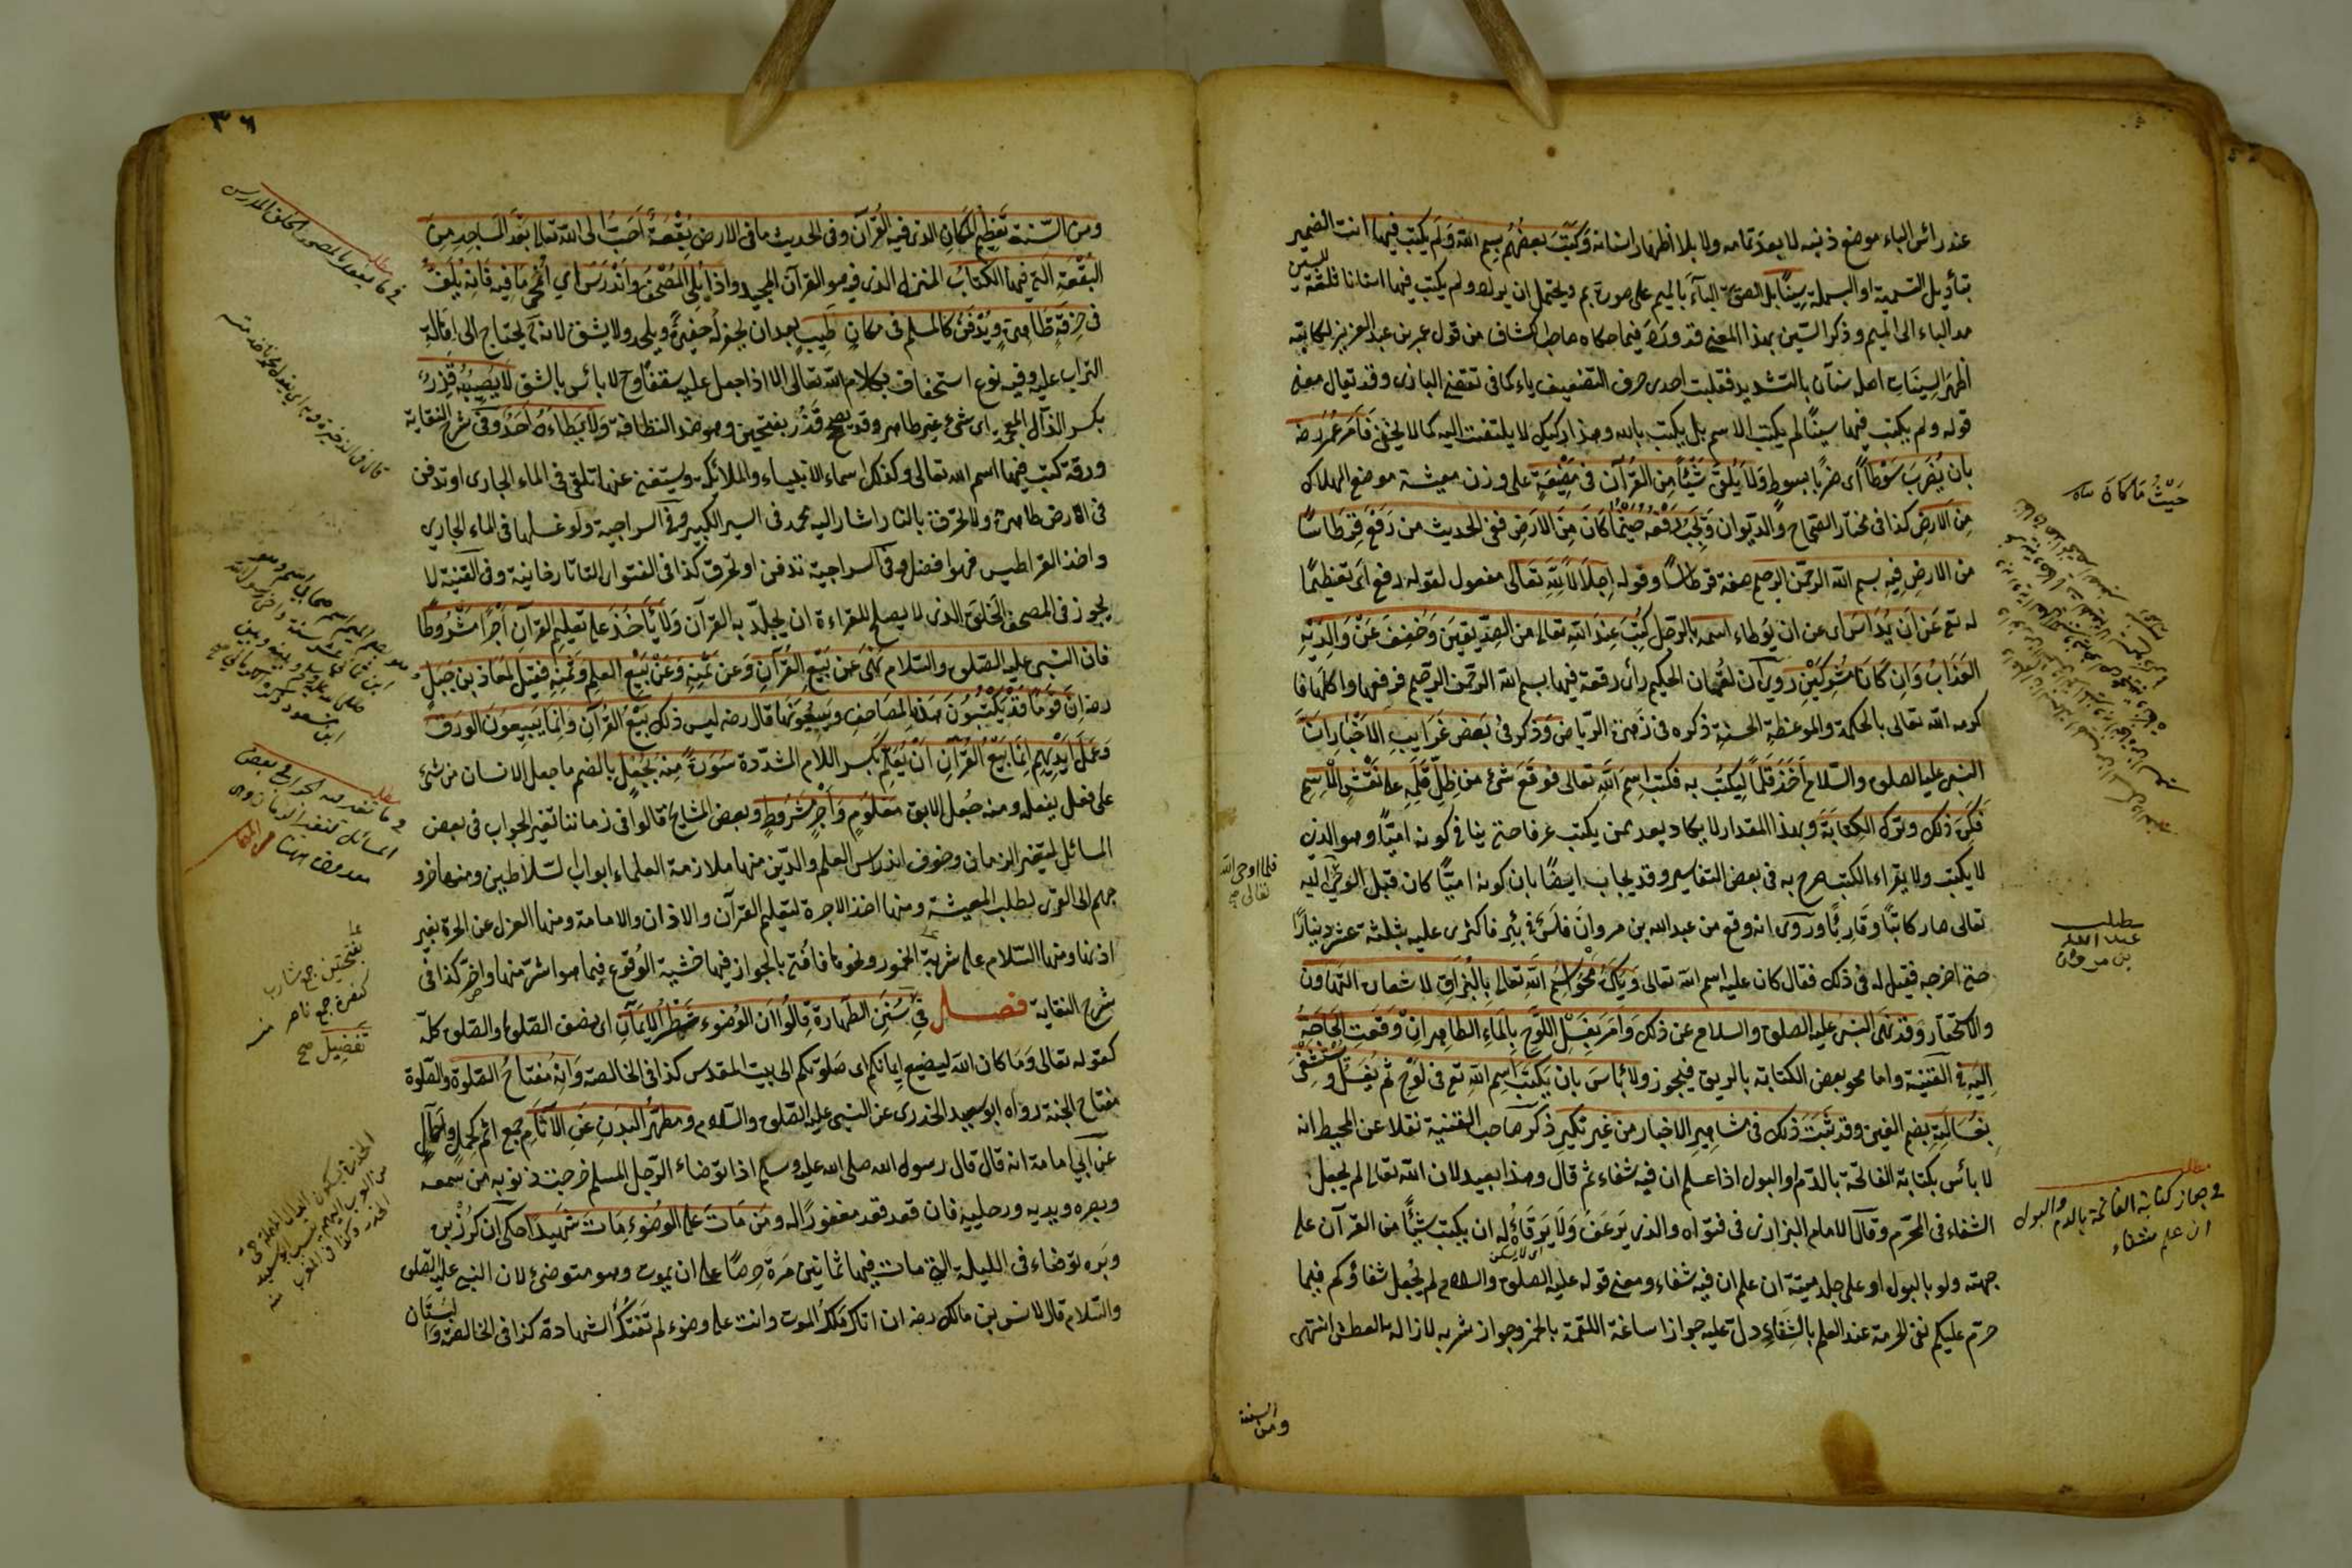 عند رأس الباء موضع ذنبه لا بعد تمامه ولا بلا اظهار اسنانه وكتب بعضهم بسم الله ولم يكتب فيها انث الضمير
بتأويل التسمية او البسملة سينا بل الصق الباء بالميم على صورة بم ويحتمل ان يراد ولم يكتب فيها اسنانا ثلثة للسين
مد الباء الى الميم وذكر السين بهذا المعنى قد ورد فيما حكاه صاحب الكشاف من قول عمر بن عبد العزيز لكاتبه
اظهر السينات اصل سنان بالتشديد فقلبت احدى حرف التضعيف ياء كما في تقضي البازى وقد يقال معنى
قوله ولم يكتب فيها سينا لم يكتب الاسم بل يكتب بالله وهذا ركيك لا يلتفت اليه كما لا يخفى فامر عمر رضه
بان يضرب سوطا اى ضربا بسوط ولا يلق شيئا من القرآن في مضيعة على وزن معيشة موضع الهلاك
من الارض كذا في مختار الصحاح والديوان ويجب رفعه حيثما كان من الارض ففى الحديث من رفع قرطاسا
من الارض فيه بسم الله الرحمن الرحيم صفة قرطاسا وقوله اجلالا لله تعالى مفعول لقوله رفع اى تعظيما
له تع عن ان يداس اى عن ان يوطاء اسمه بالرجل كتب عند الله تعالى من الصديقين وخفف عن والديه
العذاب وان كانا مشركين روى ان لقمان الحكيم رأى رقعة فيها بسم الله الرحمن الرحيم فرفعها واكلها فا
كرمه الله تعالى بالحكمة والموعظة الحسنة ذكره في زهرة الرياض وذكر في بعض غرايب الاخبار ان
النبى عليه الصلوة والسلام اخذ قلما ليكتب به فكتب اسم الله تعالى فوقع شئ من ظل قلمه على نقش الاسم
فكره ذلك وترك الكتابة وبهذا المقدار لا يكاد يعد ممن يكتب عرفا حتى ينافي كونه اميا وهو الذى
لا يكتب ولا يقراء الكتب صرح به في بعض التفاسير وقد يجاب ايضا بان كونه اميا كان قبل الوحى اليه
تعالى صار كاتبا وقارئا وروى انه وقع من عبد الله بن مروان فلس في بئر فاكترى عليه بثلثة عشر دينارا
حتى اخرجه فقيل له في ذلك فقال كان عليه اسم الله تعالى ويكره محو اسم الله تعالى بالبزاق لاشعاره التهاون
والاحتقار وقد نهى النبى عليه الصلوة والسلام عن ذلك وامر بغسل اللوح بالماء الطاهر ان وقعت الحاجة
اليه في القنية واما محو بعض الكتابة بالريق فيجوز ولا بأس بان يكتب اسم الله تع في لوح ثم يغسل ويستشفى
بغسالته بضم الغين وقد ثبت ذلك في مشاهير الاخبار من غير نكير ذكر صاحب القنية نقلا عن المحيط انه
لا بأس بكتابة الفاتحة بالدم او البول اذا علم ان فيه شفاء ثم قال وهذا بعيد لان الله تعالى لم يجعل
الشفاء في المحرم وقال الامام البزازى في فتواه والذى يرعف ولا يرقاء له ان يكتب شيئا من القرآن على
جبهته ولو بالبول او على جلد ميتة ان علم ان فيه شفاء ومعنى قوله عليه الصلوة والسلام لم يجعل شفاؤكم فيما
حرم عليكم نفى الحرمة عند العلم بالشفاء دل عليه جواز اساغة اللقمة بالخمر وجواز شربه لازالة العطش انتهى
ومن السنة
حيث ما كان
فلما اوحى الله
تعالى صح
مطلب
عبد الله
بن مروان
مطلب
في جواز كتابة الفاتحة بالدم والبول
ان علم شفاء
٣٦
ومن السنة تعظيم المكان الذى فيه القرآن وفى الحديث ما في الارض بقعة احب الى الله تعالى بعد المساجد من
البقعة التى فيها الكتاب المنزل الذى فيه هو القرآن المجيد واذا بلى المصحف واندرس اى انمحى ما فيه فانه يلف
في خرقة طاهرة ويدفن كالمسلم في مكان طيب بعد ان يحفر له حفيرة ويلحد ولا يشق لانه ح يحتاج الى اهالة
التراب عليه وفيه نوع استخفاف بكلام الله تعالى الا اذا جعل عليه سقفا وح لا بأس بالشق لا يصيبه قذر
بكسر الذال المعجمة اى شئ غير طاهر وقد يصح قذر بفتحتين وهو ضد النظافة ولا يطاءه احد وفى شرح النقاية
ورقة كتب فيها اسم الله تعالى وكذلك اسماء الانبياء والملائكة ويستغنى عنها تلقى في الماء الجارى او تدفن
في الارض طاهرة ولا تحرق بالنار اشار اليه محمد في السير الكبير وفى السراجية ولو غسلها في الماء الجارى
واخذ القراطيس فهو افضل وفى السراجية تدفن او تحرق كذا في الفتوى التاتارخانية وفى القنية لا
يجوز في المصحف الخلق الذى لا يصلح للقراءة ان يجلد به القرآن ولا يأخذ على تعليم القرآن اجرا مشروطا
فان النبى عليه الصلوة والسلام نهى عن بيع القرآن وعن ثمنه وعن بيع العلم وثمنه فقيل لمعاذ بن جبل
رضه ان قوما قد يكتبون هذه المصاحف ويبيعونها قال رضه ليس ذلك بيع القرآن وانما يبيعون الورق
وعمل ايديهم انما بيع القرآن ان يعلم بكسر اللام المشددة سورة منه بجعل بالضم ما جعل الانسان من شئ
على فعل يفعله ومنه جعل الابق معلوم واجر مشروط وبعض المشايخ قالوا في زماننا تغير الجواب في بعض
المسائل لتغير الزمان وخوف اندراس العلم والدين منها ملازمة العلماء ابواب السلاطين ومنها خرو
جهم الى القرى لطلب المعيشة ومنها اخذ الاجرة لتعليم القرآن والاذان والامامة ومنها العزل عن الحرة بغير
اذنها ومنها السلام على شربة الخمور ونحوها فافتى بالجواز فيها خشية الوقوع فيما هو اشر منها واضر كذا في
شرح النقاية فصل في سنن الطهارة قالوا ان الوضوء شطر الايمان اى نصف الصلوة والصلوة كله
كقوله تعالى وما كان الله ليضيع ايمانكم اى صلوتكم الى بيت المقدس كذا في الخالصة وانه مفتاح الصلوة والصلوة
مفتاح الجنة رواه ابو سعيد الخدرى عن النبى عليه الصلوة والسلام ومطهر البدن عن الآثام جمع اثم كحمل واحمال
عن ابى امامة انه قال قال رسول الله صلى الله عليه وسلم اذا توضاء الرجل المسلم خرجت ذنوبه من سمعه
وبصره ويديه ورجليه فان قعد قعد مغفورا له ومن مات على الوضوء مات شهيدا حكى ان كرز بن
وبره توضاء في الليلة التى مات فيها ثمانين مرة حرصا على ان يموت وهو متوضئ لان النبى عليه الصلوة
والسلام قال لانس بن مالك رضه ان اتاك ملك الموت وانت على وضوء لم تفتك الشهادة كذا في الخالصة والبستان
مطلب
مطلب
في ما تغير فيه الجواب في بعض
المسائل لتغير الزمان
بفتحتين جمع شارب
كنفرة جمع ناصر منه
تفضيل صح